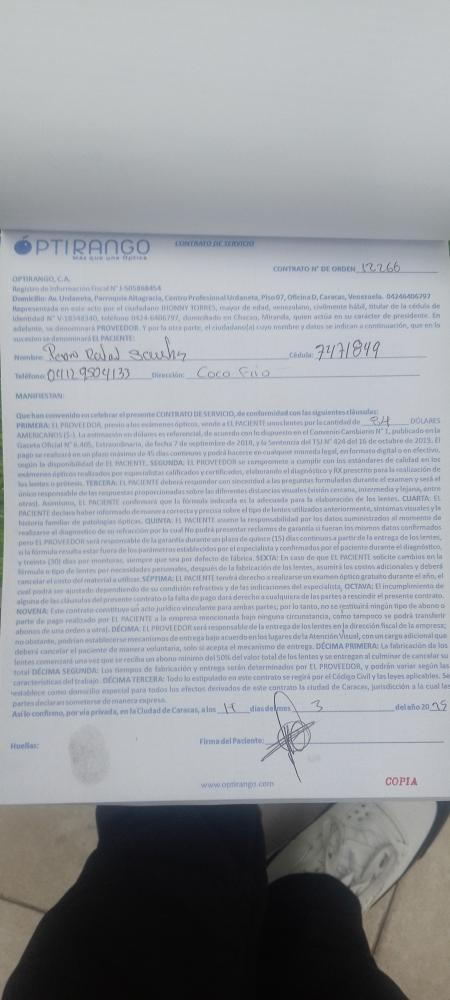 OPTIRANGO
Más que una Óptica
CONTRATO DE SERVICIO
CONTRATO N° DE ORDEN 12266
OPTIRANGO, C.A.
Registro de Información Fiscal N° J-505868454
Domicilio: Av. Urdaneta, Parroquia Altagracia, Centro Profesional Urdaneta, Piso 07, Oficina D, Caracas, Venezuela. 04246406797
Representada en este acto por el ciudadano JHONNY TORRES, mayor de edad, venezolano, civilmente hábil, titular de la cédula de
identidad N° V-18348340, teléfono 0424-6406797, domiciliado en Chacao, Miranda, quien actúa en su carácter de presidente. En
adelante, se denominará PROVEEDOR. Y por la otra parte, el ciudadano(a) cuyo nombre y datos se indican a continuación, que en lo
sucesivo se denominará EL PACIENTE:
Nombre: Cédula: 7471849
Teléfono: 04129824133 Dirección: Coco Frio
MANIFIESTAN:
Que han convenido en celebrar el presente CONTRATO DE SERVICIO, de conformidad con las siguientes cláusulas:
PRIMERA: EL PROVEEDOR, previo a los exámenes ópticos, vende a EL PACIENTE unos lentes por la cantidad de 84 DÓLARES
AMERICANOS ($-). La estimación en dólares es referencial, de acuerdo con lo dispuesto en el Convenio Cambiario N° 1, publicado en la
Gaceta Oficial N° 6.405, Extraordinaria, de fecha 7 de septiembre de 2018, y la Sentencia del TSJ N° 424 del 16 de octubre de 2019. El
pago se realizará en un plazo máximo de 45 días continuos y podrá hacerse en cualquier moneda legal, en formato digital o en efectivo,
según la disponibilidad de EL PACIENTE. SEGUNDA: EL PROVEEDOR se compromete a cumplir con los estándares de calidad en los
exámenes ópticos realizados por especialistas calificados y certificados, elaborando el diagnóstico y RX prescrito para la realización de
los lentes o prótesis. TERCERA: EL PACIENTE deberá responder con sinceridad a las preguntas formuladas durante el examen y será el
único responsable de las respuestas proporcionadas sobre las diferentes distancias visuales (visión cercana, intermedia y lejana, entre
otras). Asimismo, EL PACIENTE confirmará que la fórmula indicada es la adecuada para la elaboración de los lentes. CUARTA: EL
PACIENTE declara haber informado de manera correcta y precisa sobre el tipo de lentes utilizados anteriormente, síntomas visuales y la
historia familiar de patologías ópticas. QUINTA: EL PACIENTE asume la responsabilidad por los datos suministrados al momento de
realizarse el diagnostico de su refracción por lo cual No podrá presentar reclamos de garantía si fueran los mismos datos confirmados
pero EL PROVEEDOR será responsable de la garantía durante un plazo de quince (15) días continuos a partir de la entrega de los lentes,
si la fórmula resulta estar fuera de los parámetros establecidos por el especialista y confirmados por el paciente durante el diagnóstico,
y treinta (30) días por monturas, siempre que sea por defecto de fábrica. SEXTA: En caso de que EL PACIENTE solicite cambios en la
fórmula o tipo de lentes por necesidades personales, después de la fabricación de los lentes, asumirá los costos adicionales y deberá
cancelar el costo del material a utilizar. SÉPTIMA: EL PACIENTE tendrá derecho a realizarse un examen óptico gratuito durante el año, el
cual podrá ser ajustado dependiendo de su condición refractiva y de las indicaciones del especialista, OCTAVA: El incumplimiento de
alguna de las cláusulas del presente contrato o la falta de pago dará derecho a cualquiera de las partes a rescindir el presente contrato.
NOVENA: Este contrato constituye un acto jurídico vinculante para ambas partes; por lo tanto, no se restituirá ningún tipo de abono o
parte de pago realizado por EL PACIENTE a la empresa mencionada bajo ninguna circunstancia, como tampoco se podrá transferir
abonos de una orden a otra). DÉCIMA: EL PROVEEDOR será responsable de la entrega de los lentes en la dirección fiscal de la empresa;
no obstante, podrían establecerse mecanismos de entrega bajo acuerdo en los lugares de la Atención Visual, con un cargo adicional que
deberá cancelar el paciente de manera voluntaria, solo si acepta el mecanismo de entrega. DÉCIMA PRIMERA: La fabricación de los
lentes comenzará una vez que se reciba un abono mínimo del 50% del valor total de los lentes y se entregan al culminar de cancelar su
total DÉCIMA SEGUNDA: Los tiempos de fabricación y entrega serán determinados por EL PROVEEDOR, y podrán variar según las
características del trabajo. DÉCIMA TERCERA: Todo lo estipulado en este contrato se regirá por el Código Civil y las leyes aplicables. Se
establece como domicilio especial para todos los efectos derivados de este contrato la ciudad de Caracas, jurisdicción a la cual las
partes declaran someterse de manera expresa.
Así lo confirmo, por vía privada, en la Ciudad de Caracas, a los 14 días del mes 3 del año 2025
Huellas: Firma del Paciente:
www.optirango.com
COPIA